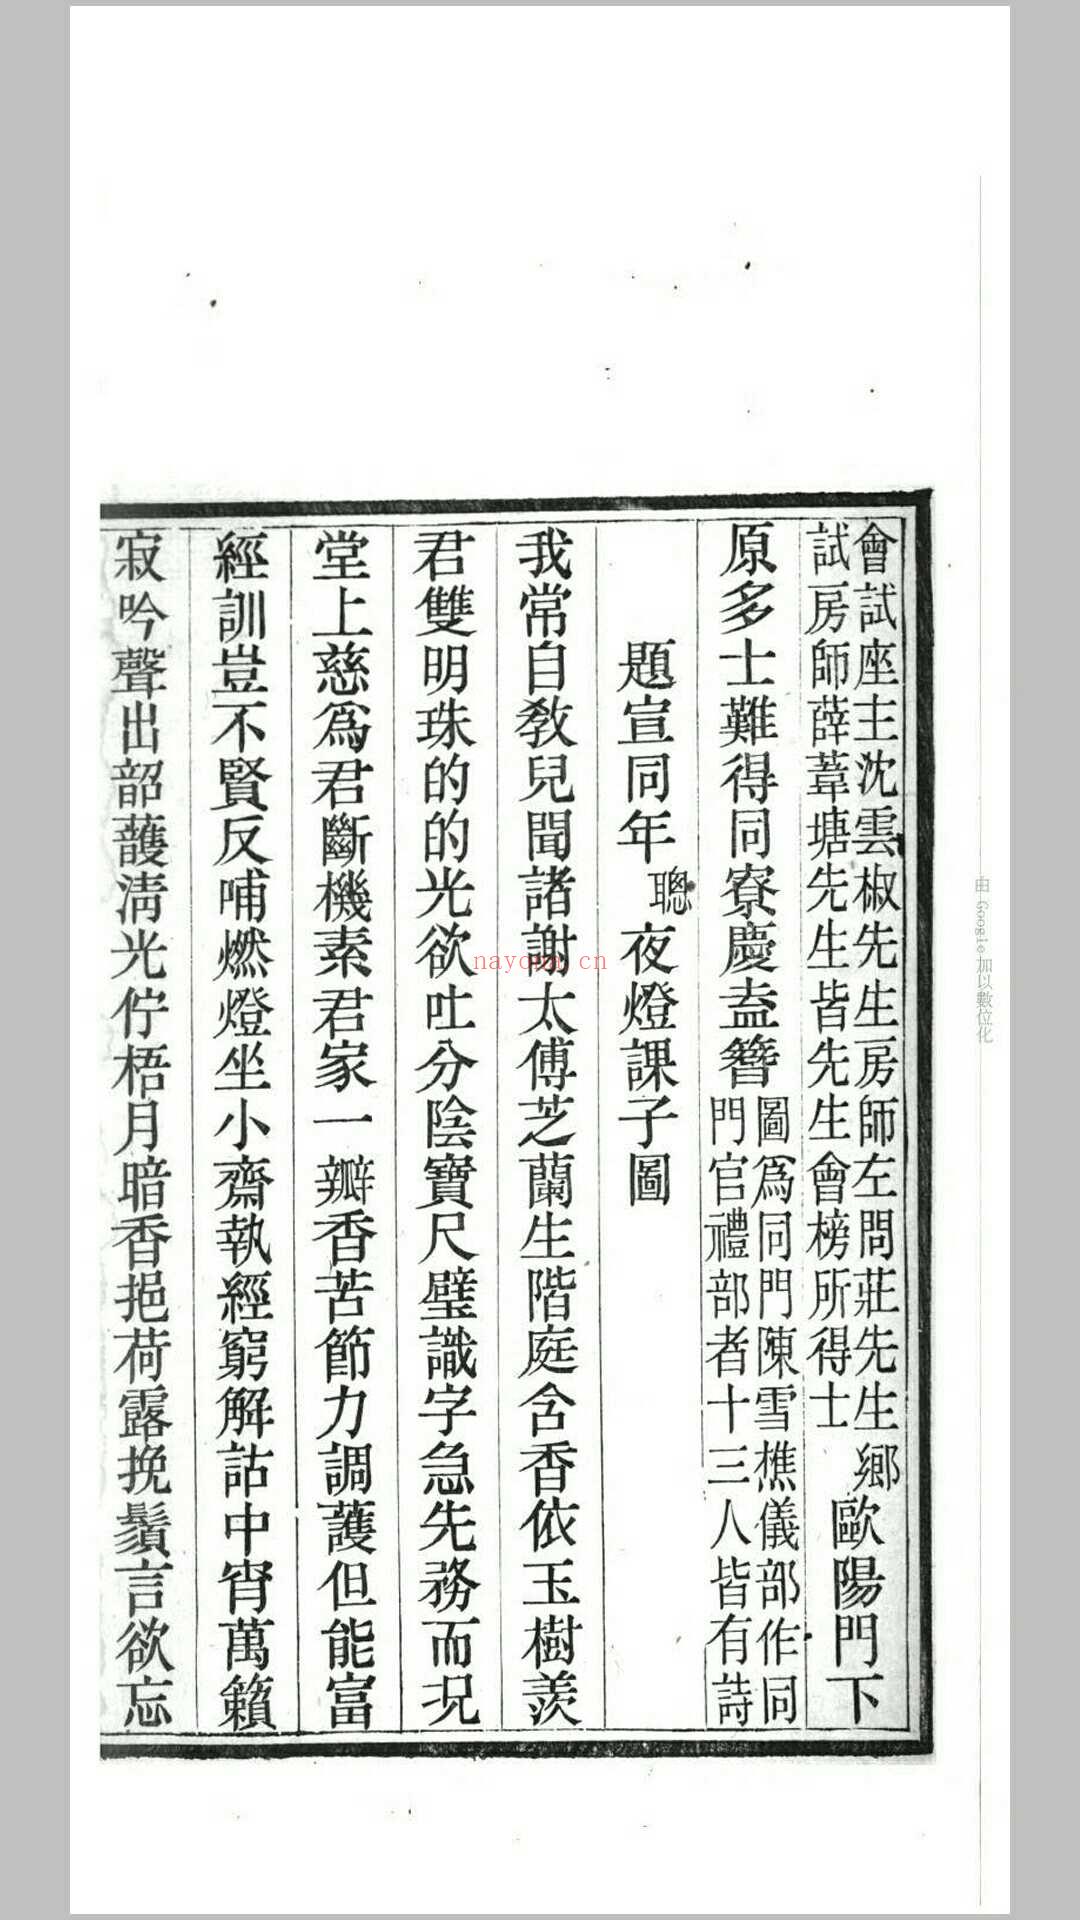 會試座主沈雲椒先生房師左問莊先生鄉
試房師薛葦塘先生皆先生會榜所得士
歐陽門下
原多士難得同寮慶盍簪
圖爲同門陳雪樵儀部作同
門官禮部者十三人皆有詩
題宣同年聰夜燈課子圖
我常自敎兒聞諸謝太傅芝蘭生階庭含香依玉樹羨
君雙明珠的的光欲吐分陰寶尺璧識字急先務而况
堂上慈爲君斷機素君家一瓣香苦節力調護但能富
經訓豈不賢反哺燃燈坐小齋執經窮解詁中宵萬籟
寂吟聲出韶頀淸光佇梧月暗香挹荷露挽鬚言欲忘
由 Google 加以數位化
nayona.cn